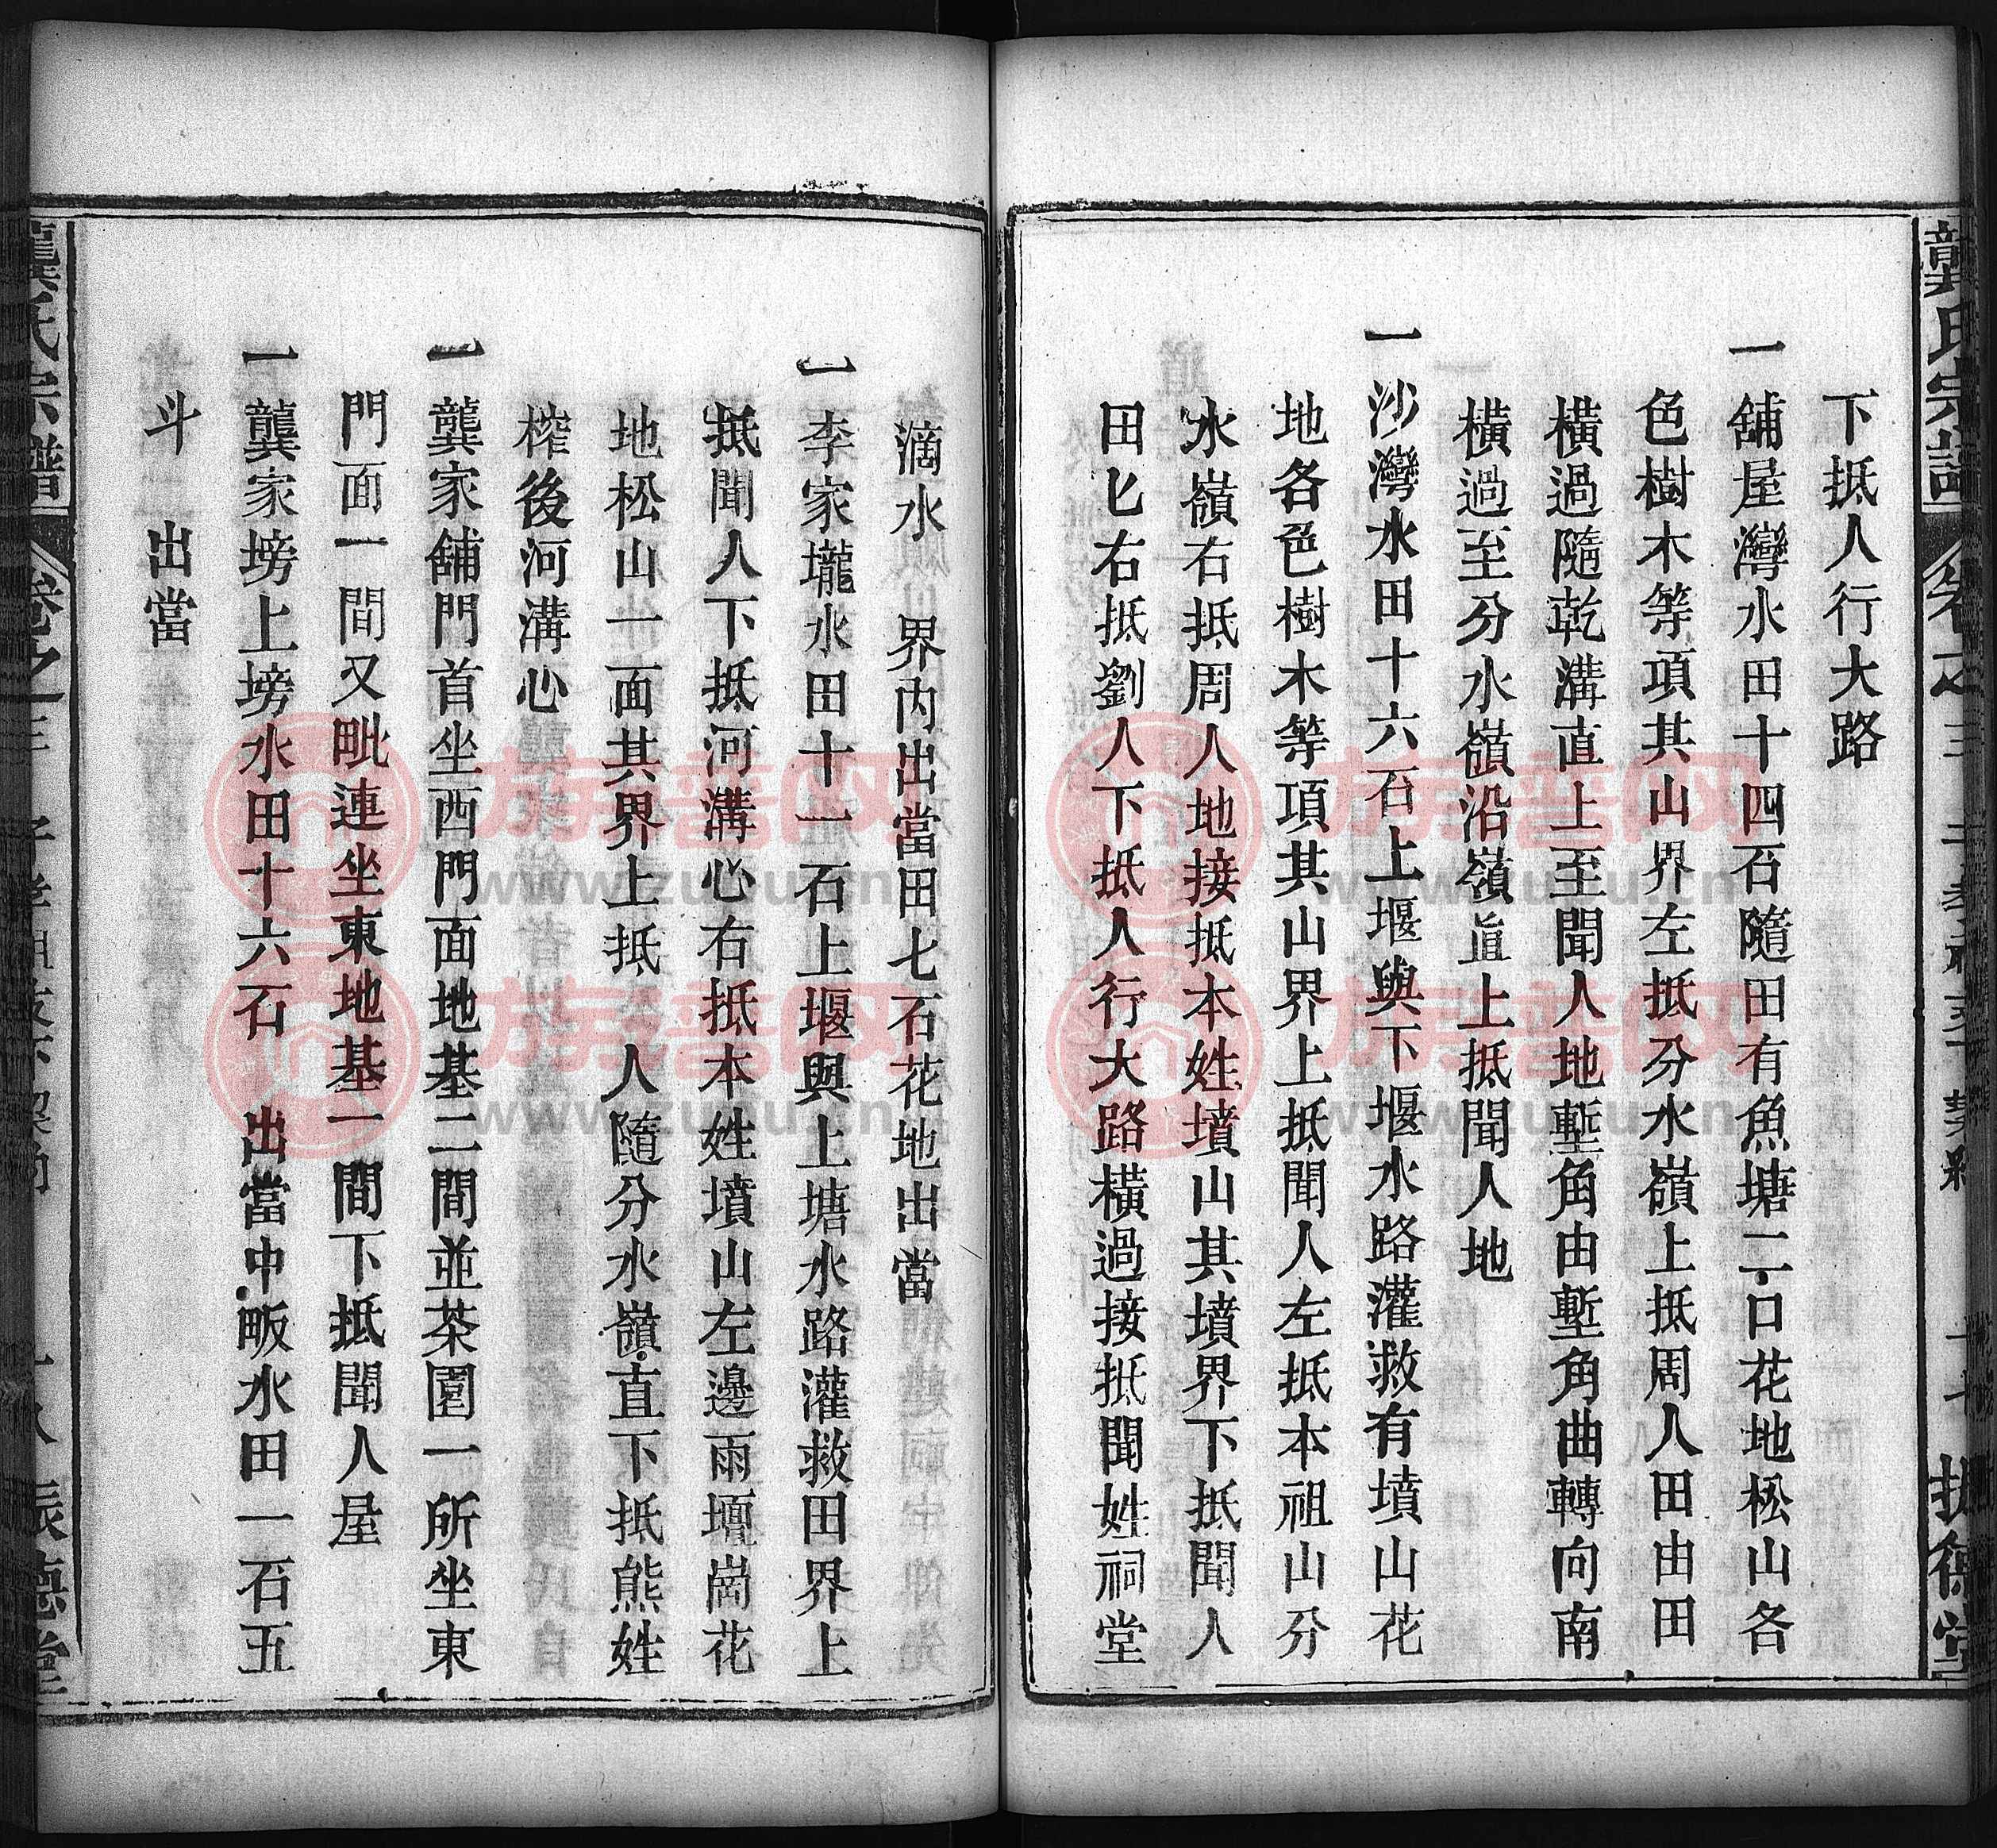 龔氏宗譜
卷之三
振德堂
下抵人行大路
一舖屋灣水田十四石隨田有魚塘二口花地松山各
色樹木等項其山界左抵分水嶺上抵周人田由田
橫過隨乾溝直上至聞人地塹角由塹角曲轉向南
橫過至分水嶺沿嶺直上抵聞人地
一沙灣水田十六石上堰與下堰水路灌救有墳山花
地各色樹木等項其山界上抵聞人左抵本祖山分
水嶺右抵周人地接抵本姓墳山其墳界下抵聞人
田匕右抵劉人下抵人行大路橫過接抵聞姓祠堂
滴水 界內出當田七石花地出當
一李家壠水田十一石上堰與上塘水路灌救田界上
抵聞人下抵河溝心右抵本姓墳山左邊雨壇崗花
地松山一面其界上抵 人隨分水嶺直下抵熊姓
榨後河溝心
一龔家舖門首坐西門面地基二間並茶園一所坐東
門面一間又毗連坐東地基一間下抵聞人屋
一龔家塝上塝水田十六石 出當中畈水田一石五
斗 出當
龔氏宗譜
卷之三
振德堂
族譜网
www.zupu.cn
族譜网
www.zupu.cn
族譜网
www.zupu.cn
族譜网
www.zupu.cn